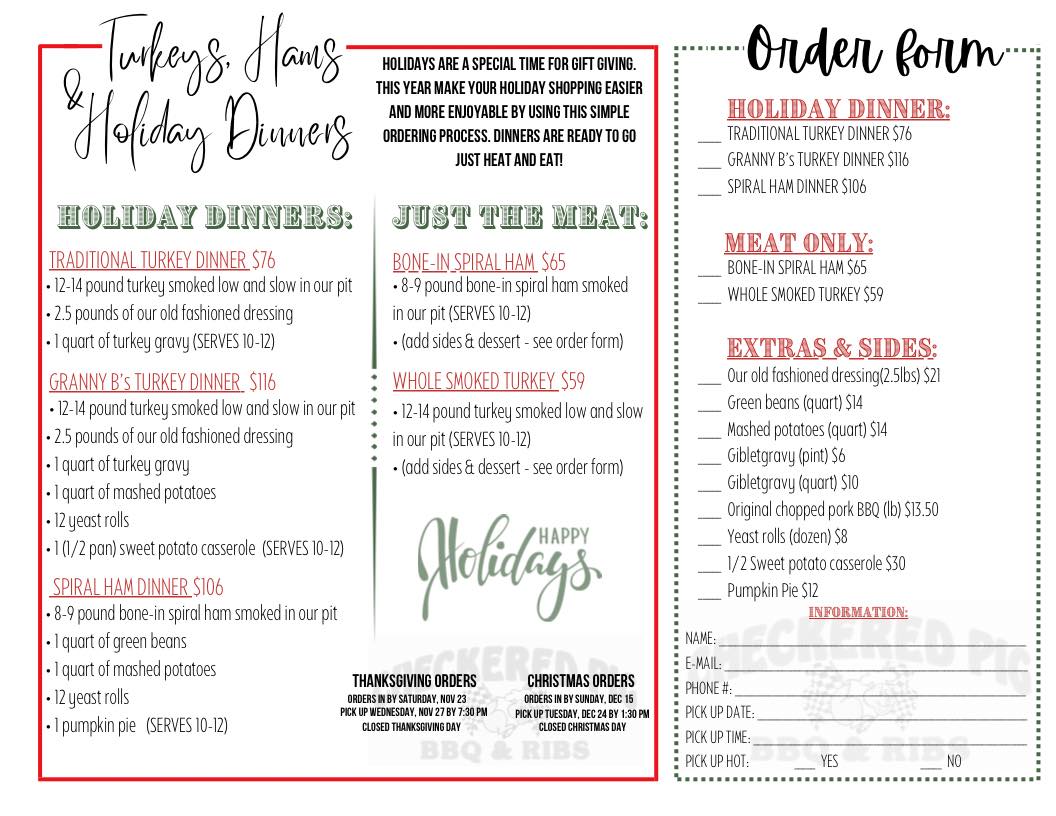 Turkeys, Hams
& Holiday Dinners
HOLIDAYS ARE A SPECIAL TIME FOR GIFT GIVING.
THIS YEAR MAKE YOUR HOLIDAY SHOPPING EASIER
AND MORE ENJOYABLE BY USING THIS SIMPLE
ORDERING PROCESS. DINNERS ARE READY TO GO
JUST HEAT AND EAT!
HOLIDAY DINNERS:
TRADITIONAL TURKEY DINNER $76
• 12-14 pound turkey smoked low and slow in our pit
• 2.5 pounds of our old fashioned dressing
• 1 quart of turkey gravy (SERVES 10-12)
GRANNY B's TURKEY DINNER $116
• 12-14 pound turkey smoked low and slow in our pit
• 2.5 pounds of our old fashioned dressing
• 1 quart of turkey gravy
• 1 quart of mashed potatoes
• 12 yeast rolls
• 1 (1/2 pan) sweet potato casserole (SERVES 10-12)
SPIRAL HAM DINNER $106
• 8-9 pound bone-in spiral ham smoked in our pit
• 1 quart of green beans
• 1 quart of mashed potatoes
• 12 yeast rolls
• 1 pumpkin pie (SERVES 10-12)
JUST THE MEAT:
BONE-IN SPIRAL HAM $65
• 8-9 pound bone-in spiral ham smoked
in our pit (SERVES 10-12)
• (add sides & dessert - see order form)
WHOLE SMOKED TURKEY $59
• 12-14 pound turkey smoked low and slow
in our pit (SERVES 10-12)
• (add sides & dessert - see order form)
HAPPY
Holidays
CHECKERED PIG
BBQ & RIBS
THANKSGIVING ORDERS
ORDERS IN BY SATURDAY, NOV 23
PICK UP WEDNESDAY, NOV 27 BY 7:30 PM
CLOSED THANKSGIVING DAY
CHRISTMAS ORDERS
ORDERS IN BY SUNDAY, DEC 15
PICK UP TUESDAY, DEC 24 BY 1:30 PM
CLOSED CHRISTMAS DAY
Order form
HOLIDAY DINNER:
___ TRADITIONAL TURKEY DINNER $76
___ GRANNY B's TURKEY DINNER $116
___ SPIRAL HAM DINNER $106
MEAT ONLY:
___ BONE-IN SPIRAL HAM $65
___ WHOLE SMOKED TURKEY $59
EXTRAS & SIDES:
___ Our old fashioned dressing(2.5lbs) $21
___ Green beans (quart) $14
___ Mashed potatoes (quart) $14
___ Gibletgravy (pint) $6
___ Gibletgravy (quart) $10
___ Original chopped pork BBQ (lb) $13.50
___ Yeast rolls (dozen) $8
___ 1/2 Sweet potato casserole $30
___ Pumpkin Pie $12
INFORMATION:
CHECKERED PIG
BBQ & RIBS
NAME: ___
E-MAIL: ___
PHONE #: ___
PICK UP DATE: ___
PICK UP TIME: ___
PICK UP HOT: ___ YES ___ NO